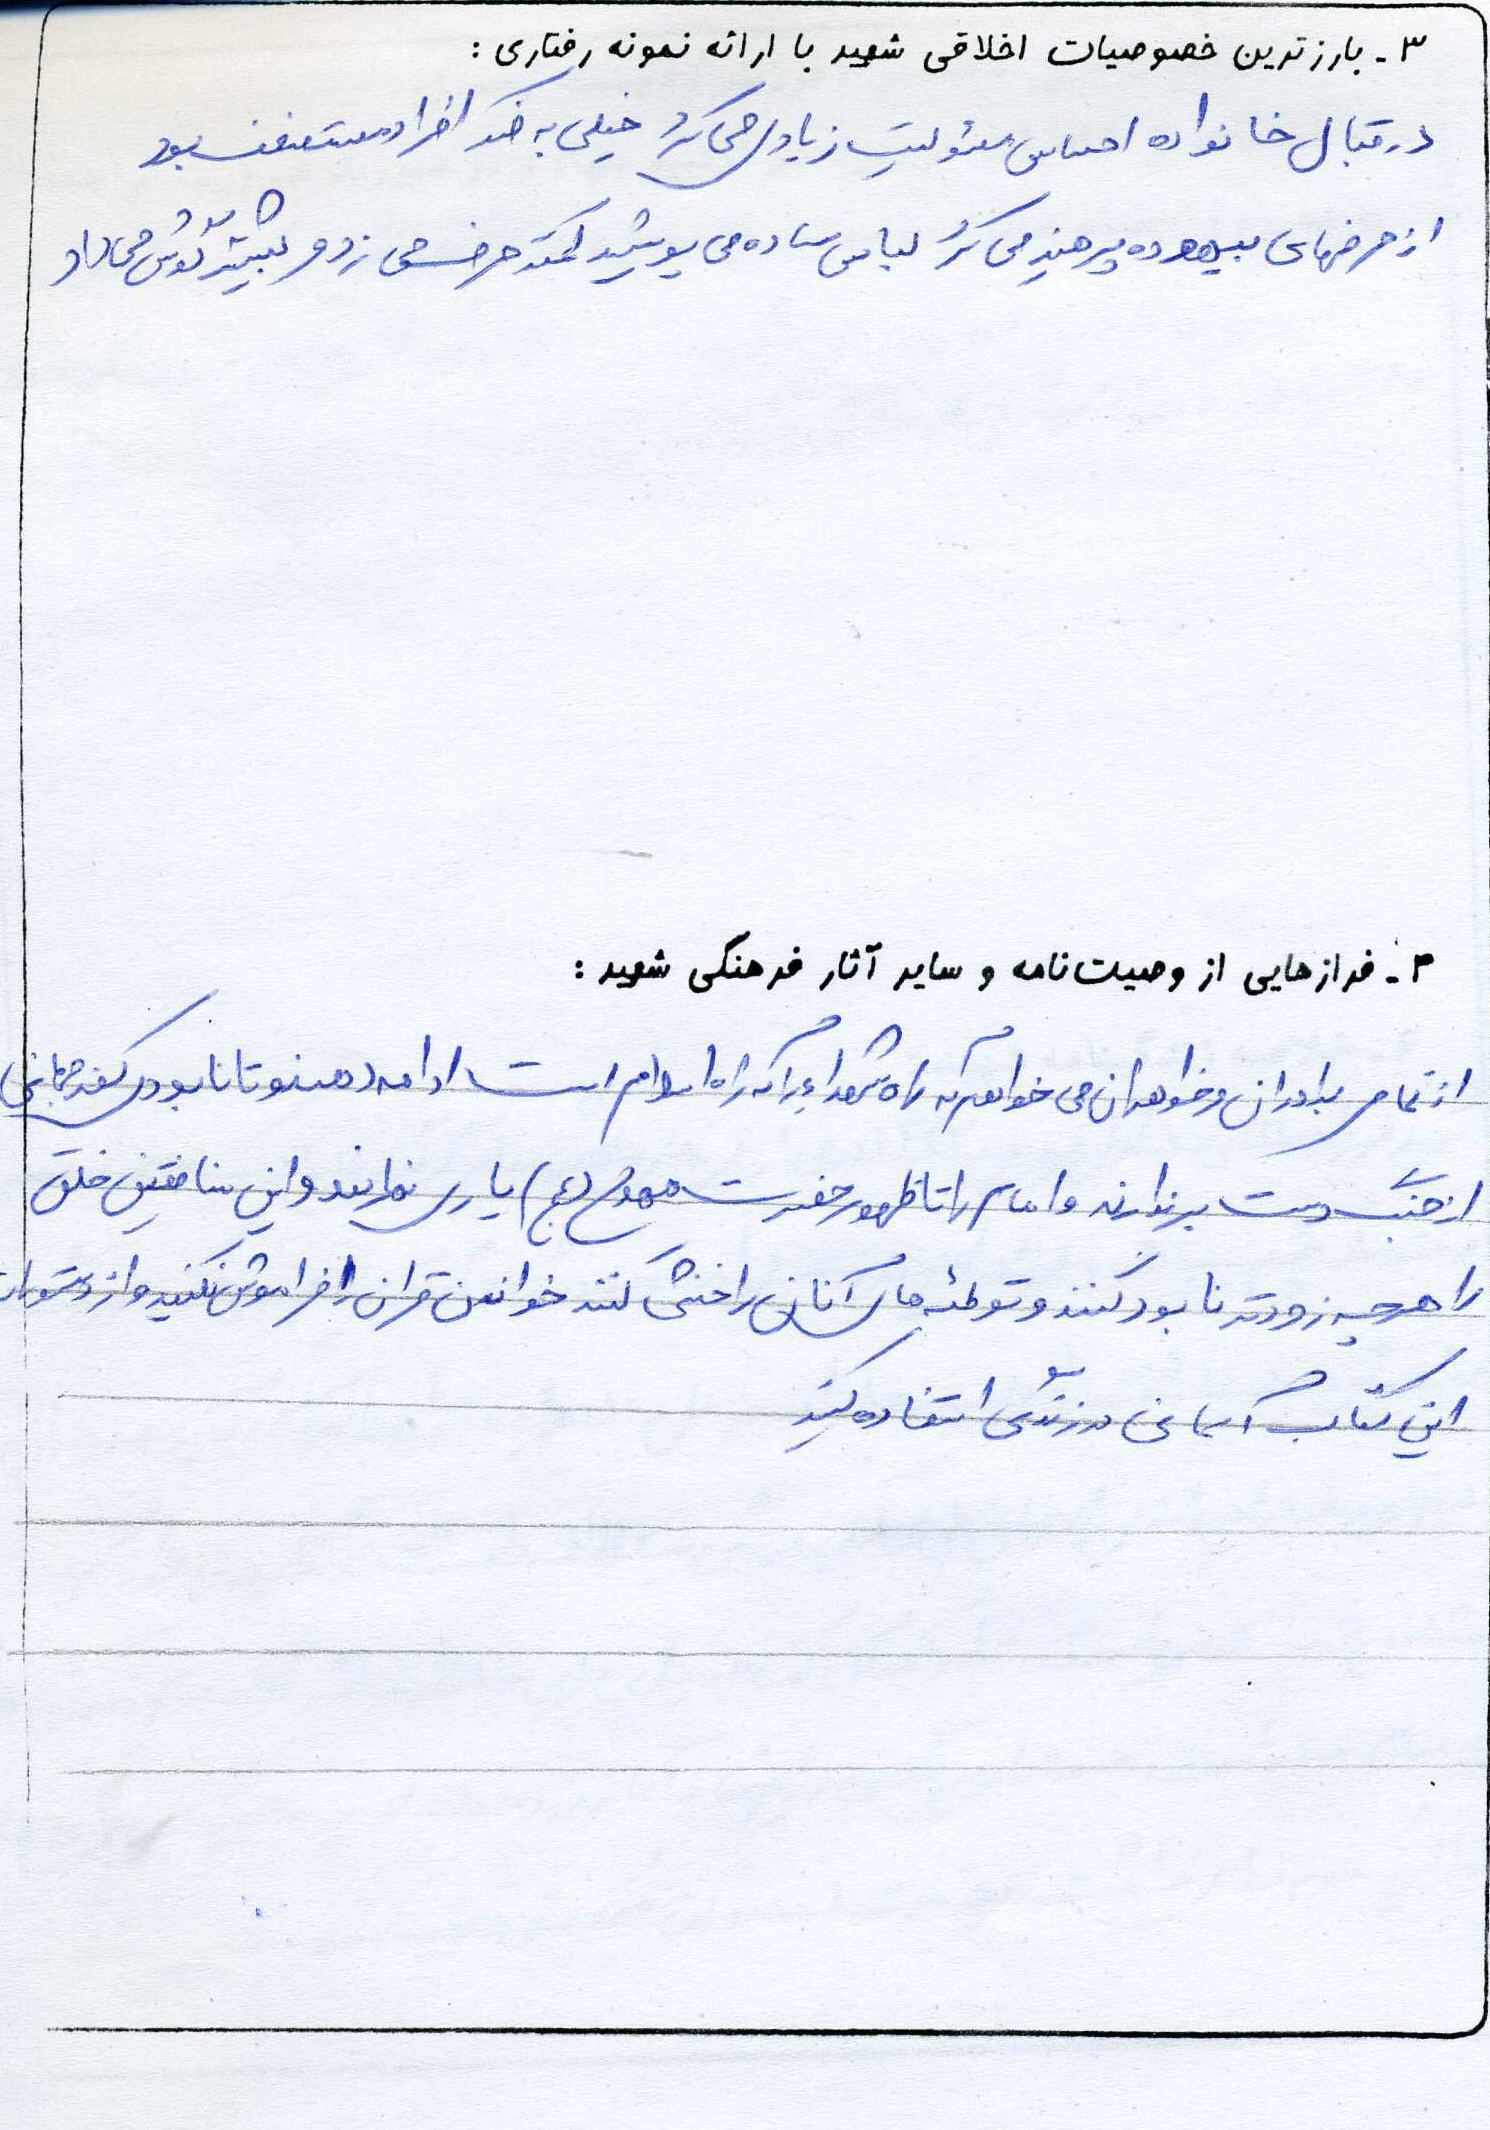 ۳ـ بارزترین خصوصیات اخلاقی شهید با ارائه نمونه رفتاری :
در قبال خانواده احساس مسئولیت زیادی می کرد خیلی به فکر افراد مستضعف بود
از حرفهای بیهوده پرهیز می کرد لباس ساده می پوشید کمتر حرف می زد و بیشتر گوش می داد
۴ـ فرازهایی از وصیت‌نامه و سایر آثار فرهنگی شهید :
از تمام برادران و خواهران می خواهم که راه شهداء را که راه اسلام است ادامه دهند و تا نابودی کفر جهانی
از جنگ دست برندارند و امام را تا ظهور حضرت مهدی (عج) یاری نمایند و این منافقین خلق
را هرچه زودتر نابود کنند و توطئه های آنان را خنثی کنند خواندن قران را فراموش نکنید و از دستورات
این کتاب آسمانی در زندگی استفاده کنید